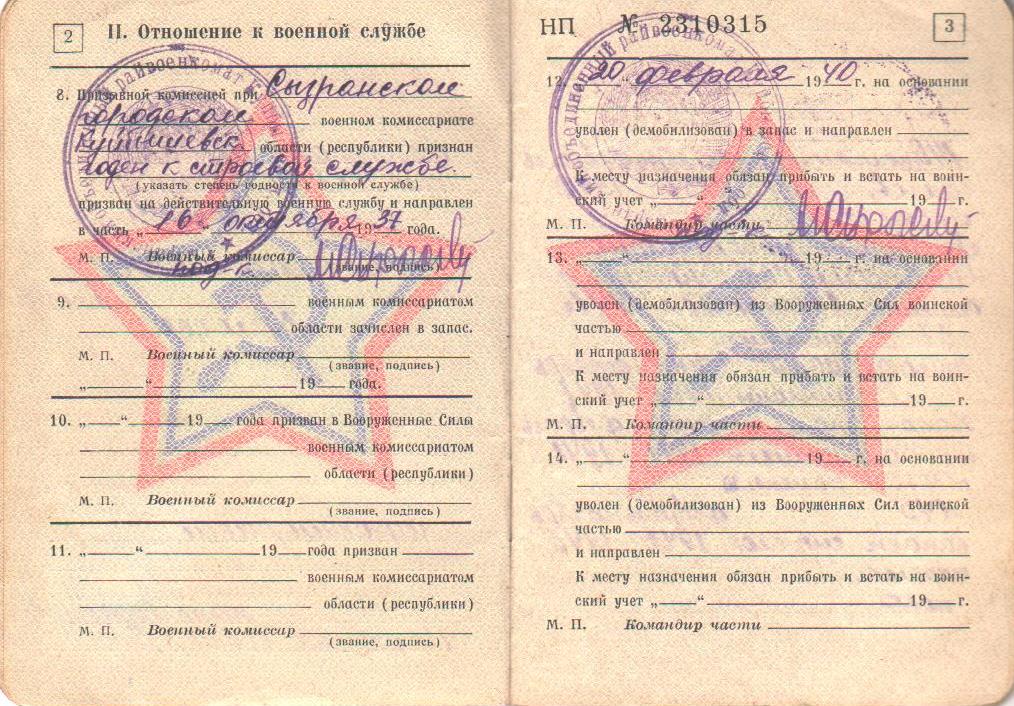 2
II. Отношение к военной службе
8. Призывной комиссией при Сызранском
городском военном комиссариате
Куйбышевск. области (республики) признан
годен к строевой службе.
(указать степень годности к военной службе)
призван на действительную военную службу и направлен
в часть „16“ октября 1937 года.
М. П. Военный комиссар
(звание, подпись)
9. военным комиссариатом
области зачислен в запас.
М. П. Военный комиссар
(звание, подпись)
„ “ 19 года.
10. „ “ 19 года призван в Вооруженные Силы
военным комиссариатом
области (республики)
М. П. Военный комиссар
(звание, подпись)
11. „ “ 19 года призван
военным комиссариатом
области (республики)
М. П. Военный комиссар
(звание, подпись)
НП № 2310315
3
12. „20“ февраля 1940 г. на основании
уволен (демобилизован) в запас и направлен
К месту назначения обязан прибыть и встать на воин-
ский учет „ “ 19 г.
М. П. Командир части
13. „ “ 19 г. на основании
уволен (демобилизован) из Вооруженных Сил воинской
частью
и направлен
К месту назначения обязан прибыть и встать на воин-
ский учет „ “ 19 г.
М. П. Командир части
14. „ “ 19 г. на основании
уволен (демобилизован) из Вооруженных Сил воинской
частью
и направлен
К месту назначения обязан прибыть и встать на воин-
ский учет „ “ 19 г.
М. П. Командир части